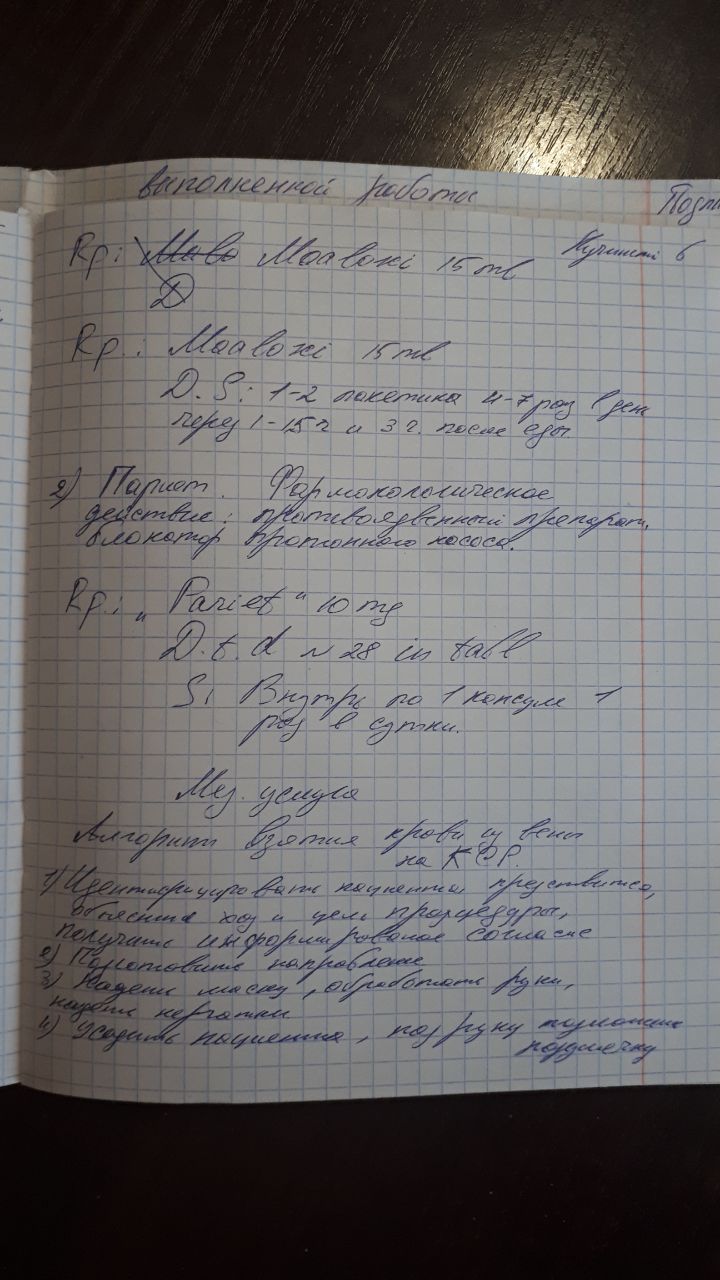 выполненной работы
Rp: Maaloxi 15 ml
Rp.: Maaloxi 15 ml
D. S: 1-2 пакетика 4-7 раз в день
через 1-1,5 ч и 3 ч. после еды
2) Париет. Фармокологическое
действие: противоязвенный препарат,
блокатор протонного насоса.
Rp.: „Pariet" 10 mg
D. t. d N 28 in tabl
S: Внутрь по 1 капсуле 1
раз в сутки.
Мед. услуга
Алгоритм взятия крови из вены
на
1) Идентифицировать пациента представится,
объяснить ход и цель процедуры,
получить информированое согласие
2) Подготовить направление
3) Надеть маску, обработать руки,
надеть перчатки
4) Усадить пациента, под руку положить
подушечку